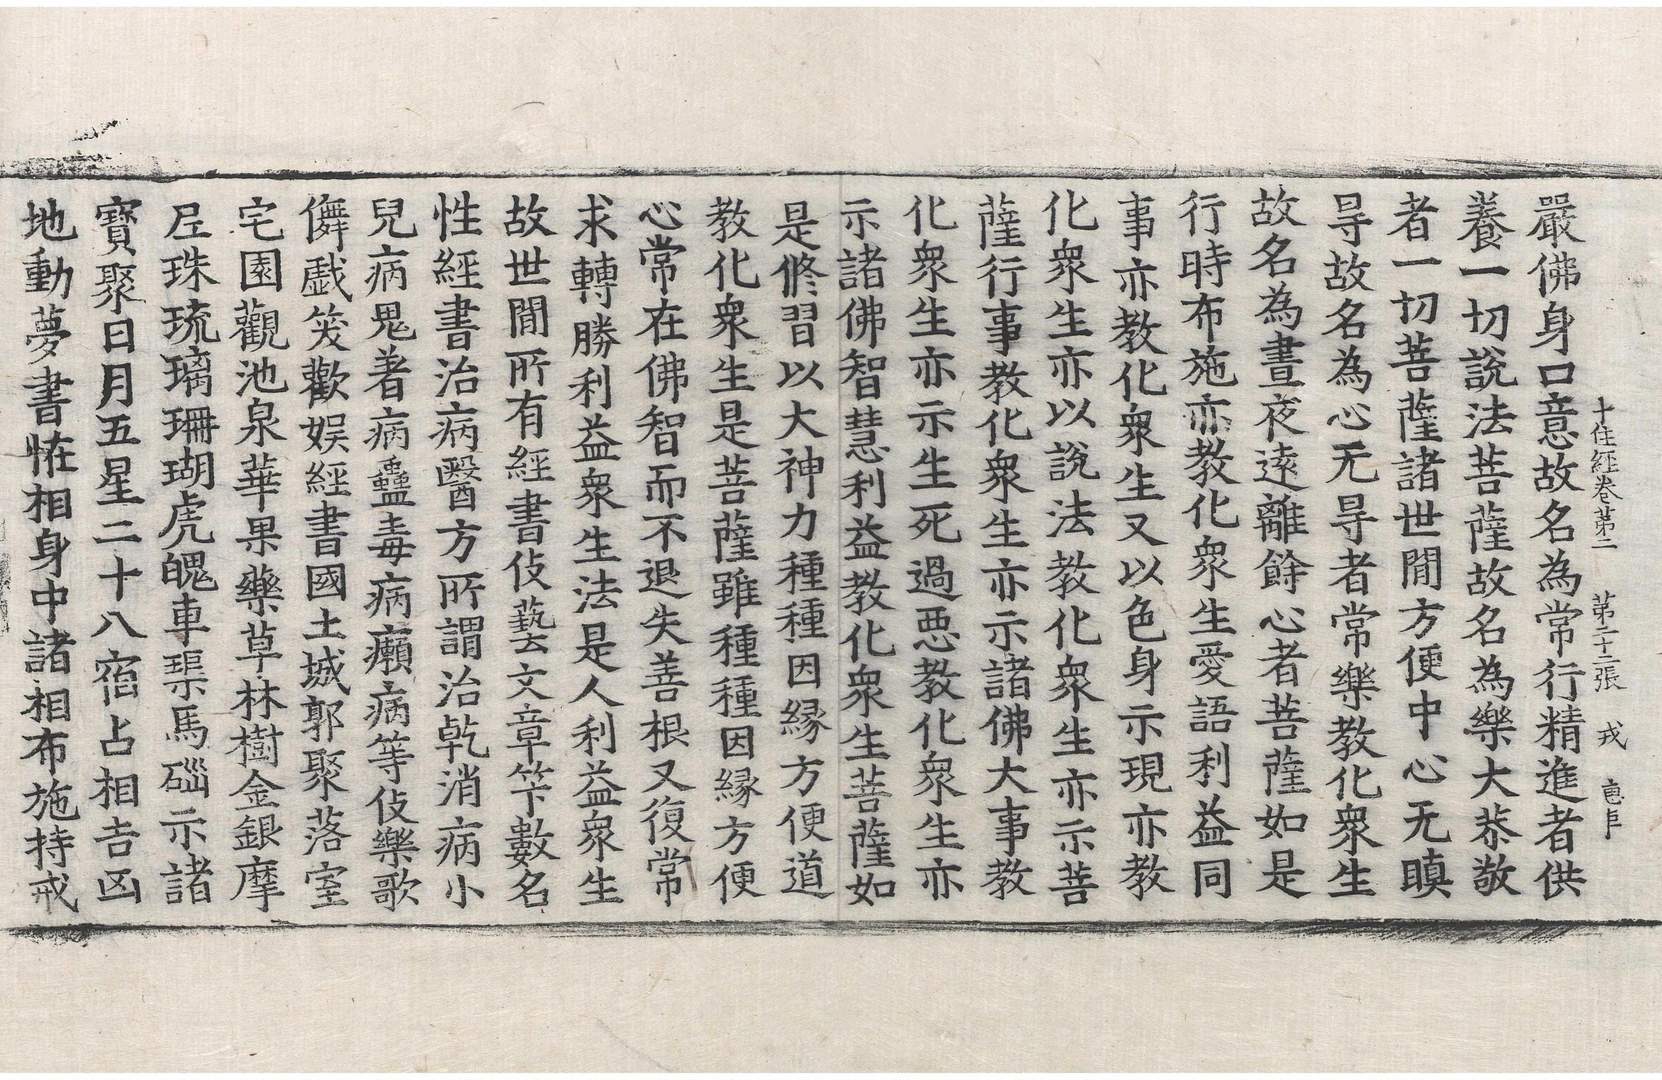 十住經卷第二 第二十二張 戎 恵臣
嚴佛身口意故名為常行精進者供
養一切說法菩薩故名為樂大恭敬
者一切菩薩諸世間方便中心无瞋
㝵故名為心无㝵者常樂教化衆生
故名為晝夜遠離餘心者菩薩如是
行時布施亦教化衆生愛語利益同
事亦教化衆生又以色身示現亦教
化衆生亦以說法教化衆生亦示菩
薩行事教化衆生亦示諸佛大事教
化衆生亦示生死過惡教化衆生亦
示諸佛智慧利益教化衆生菩薩如
是修習以大神力種種因緣方便道
教化衆生是菩薩雖種種因緣方便
心常在佛智而不退失善根又復常
求轉勝利益衆生法是人利益衆生
故世間所有經書伎藝文章筭數名
性經書治病醫方所謂治乾消病小
兒病鬼著病蠱毒病癩病等伎樂歌
儛戱笑歡娱經書國土城郭聚落室
宅園觀池泉華果藥草林樹金銀摩
尼珠琉璃珊瑚虎魄車璖馬碯示諸
寳聚日月五星二十八宿占相吉凶
地動夢書恠相身中諸相布施持戒